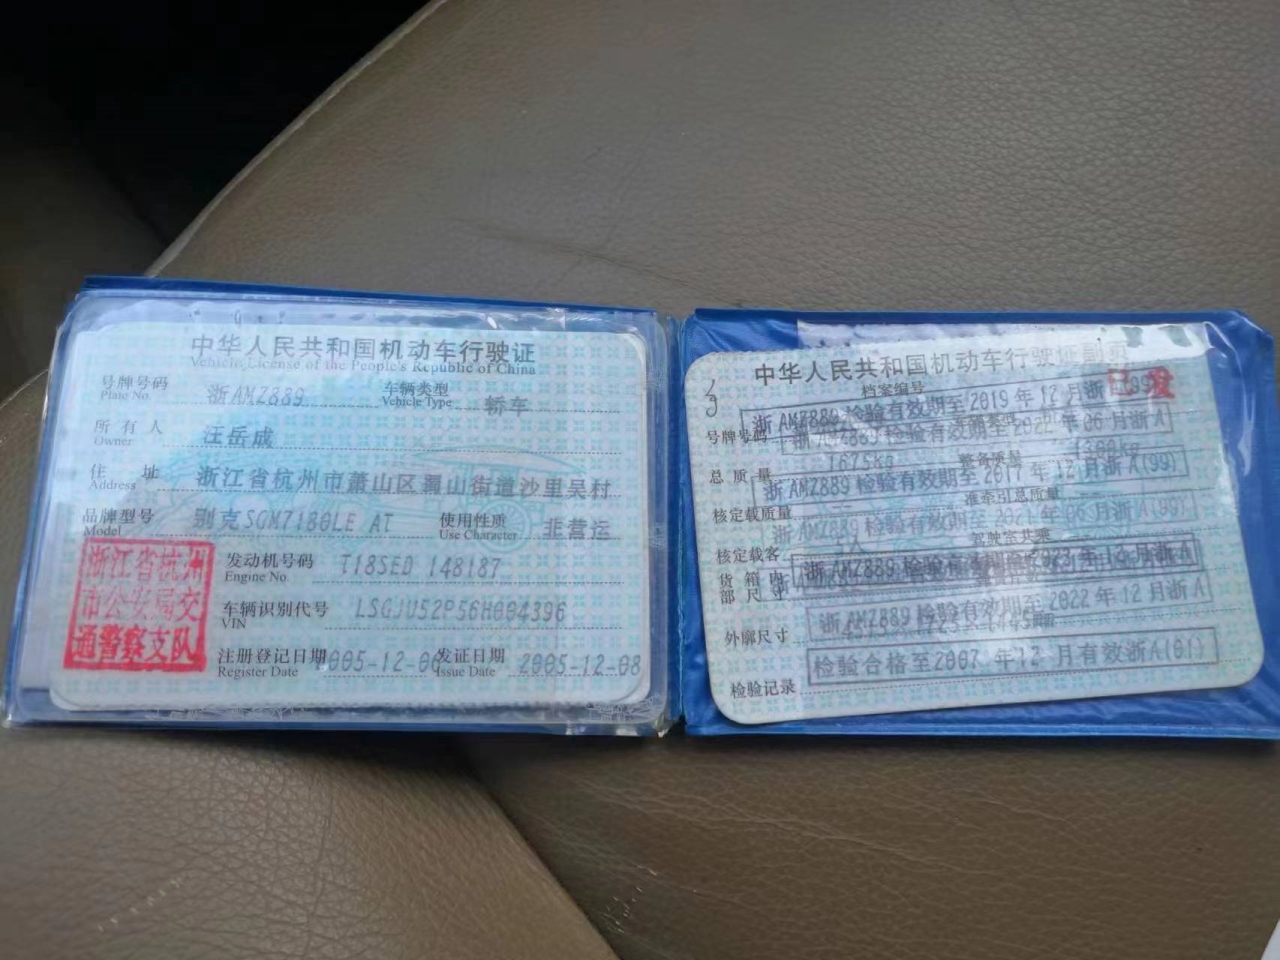 中华人民共和国机动车行驶证
Vehicle License of the People's Republic of China
号牌号码 浙AMZ889 车辆类型 轿车
Plate No. Vehicle Type
所有人 汪岳成
Owner
住址 浙江省杭州市萧山区 山街道沙里吴村
Address
品牌型号 别克SGM7180LE AT 使用性质 非营运
Model Use Character
浙江省杭州市公安局交通警察支队
发动机号码 T18SED 148187
Engine No.
车辆识别代号 LSGJU52P56H004396
VIN
注册登记日期 2005-12-0 发证日期 2005-12-08
Register Date Issue Date
中华人民共和国机动车行驶证副页
档案编号
浙AMZ889检验有效期至2019年12月浙
号牌号码
浙AMZ889检验有效期至2022年06月浙A
总质量 1675kg 整备质量
浙AMZ889检验有效期至2017年12月浙A(99)
核定载质量 准牵引总质量
浙AMZ889检验有效期至2021年06月浙A(99)
核定载客 驾驶室共乘
货箱内部尺寸
浙AMZ889检验有效期至2023年12月浙A
浙AMZ889检验有效期至2022年12月浙A
外廓尺寸
检验合格至2007年12月有效浙A(01)
检验记录